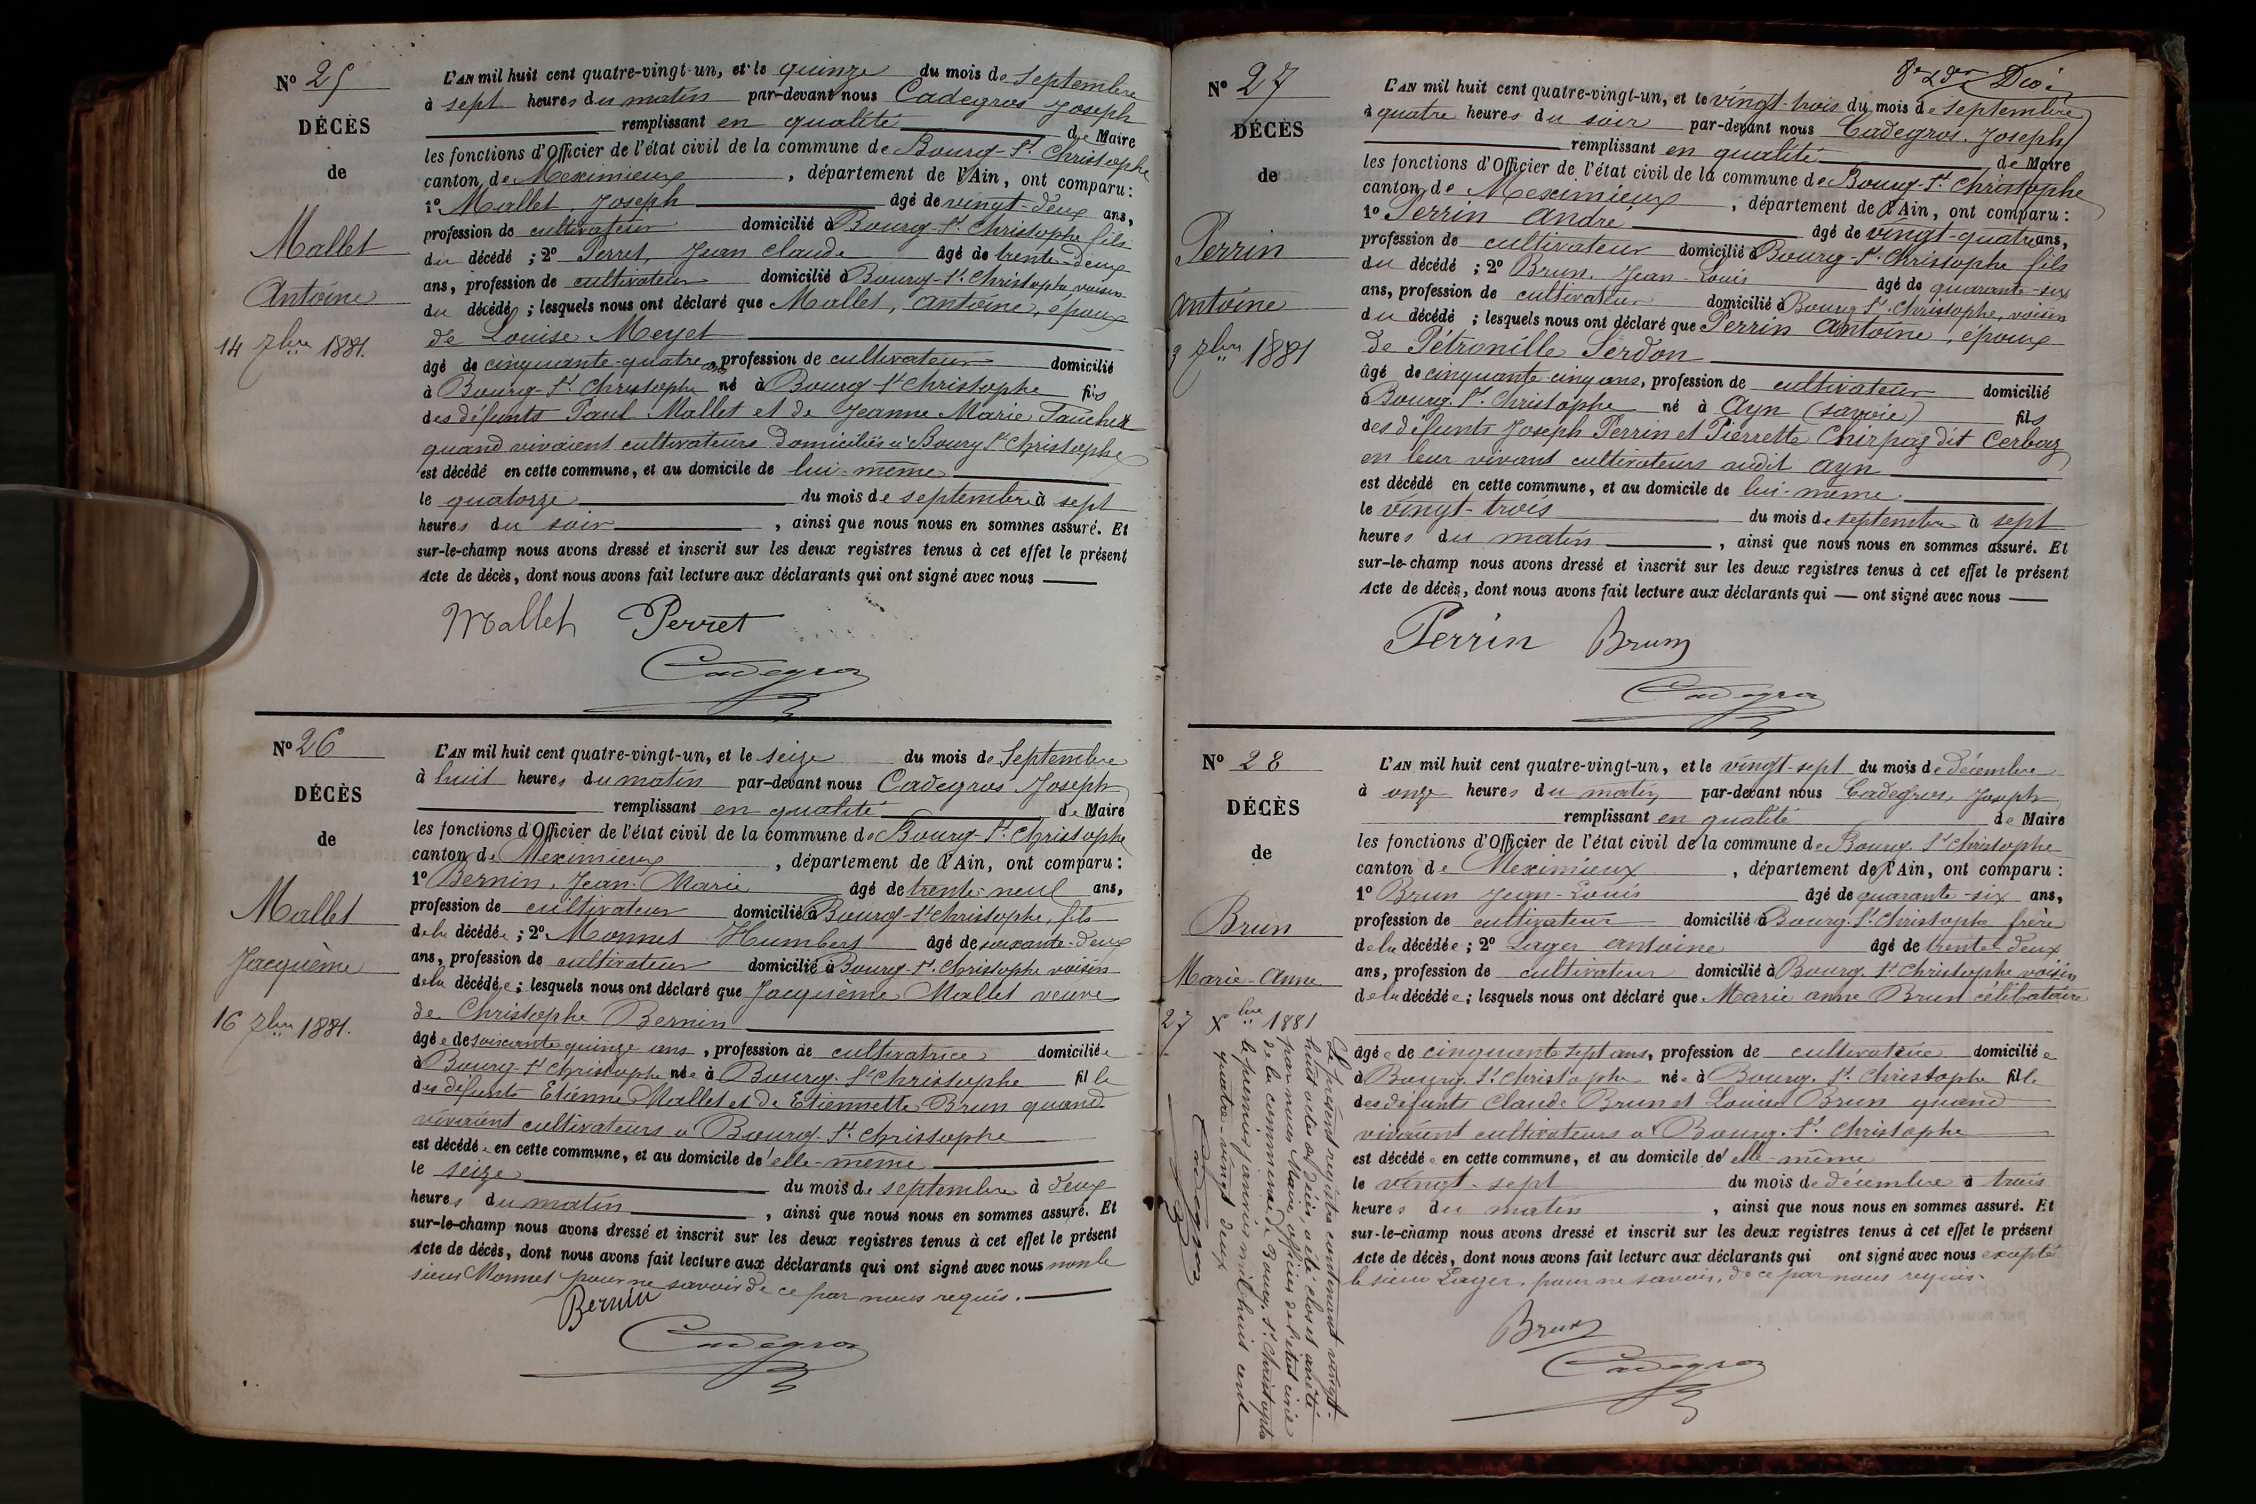 N° 25
DÉCÈS
de
Mallet
Antoine
14 7bre 1881.
L'AN mil huit cent quatre-vingt-un, et le quinze du mois de Septembre
à sept heures du matin par-devant nous Cadegros Joseph
remplissant en qualité de Maire
les fonctions d'Officier de l'état civil de la commune de Bourg-St Christophe
canton de Meximieux, département de l'Ain, ont comparu :
1° Mallet, Joseph âgé de vingt-deux ans,
profession de cultivateur domicilié à Bourg-St Christophe fils
du décédé ; 2° Perret, Jean Claude âgé de trente-deux
ans, profession de cultivateur domicilié à Bourg-St Christophe voisin
du décédé ; lesquels nous ont déclaré que Mallet, antoine, époux
de Louise Meyet
âgé de cinquante-quatre ans profession de cultivateur domicilié
à Bourg-St Christophe né à Bourg-St Christophe fils
des défunts Paul Mallet et de Jeanne Marie
quand vivaient cultivateurs domiciliés à Bourg St Christophe
est décédé en cette commune, et au domicile de lui-même
le quatorze du mois de septembre à sept
heures du soir, ainsi que nous nous en sommes assuré. Et
sur-le-champ nous avons dressé et inscrit sur les deux registres tenus à cet effet le présent
Acte de décès, dont nous avons fait lecture aux déclarants qui ont signé avec nous
Mallet Perret
Cadegros
N° 26
DÉCÈS
de
Mallet
Jacquème
16 7bre 1881.
L'AN mil huit cent quatre-vingt-un, et le seize du mois de Septembre
à huit heures du matin par-devant nous Cadegros Joseph
remplissant en qualité de Maire
les fonctions d'Officier de l'état civil de la commune de Bourg-St Christophe
canton de Meximieux, département de l'Ain, ont comparu :
1° Bernin, Jean-Marie âgé de trente-neuf ans,
profession de cultivateur domicilié à Bourg-St Christophe, fils
de la décédée ; 2° Monnet Humbert âgé de soixante-deux
ans, profession de cultivateur domicilié à Bourg-St Christophe voisin
de la décédée ; lesquels nous ont déclaré que Jacquème Mallet veuve
de Christophe Bernin
âgée de soixante quinze ans, profession de cultivatrice domiciliée
à Bourg-St Christophe née à Bourg-St Christophe fille
des défunts Etienne Mallet et de Etiennette Brun quand
vivaient cultivateurs à Bourg-St Christophe
est décédée en cette commune, et au domicile de elle-même
le seize du mois de septembre à deux
heures du matin, ainsi que nous nous en sommes assuré. Et
sur-le-champ nous avons dressé et inscrit sur les deux registres tenus à cet effet le présent
Acte de décès, dont nous avons fait lecture aux déclarants qui ont signé avec nous non le
sieur Monnet pour ne savoir de ce par nous requis.
Bernin
Cadegros
N° 27
DÉCÈS
de
Perrin
antoine
3 7bre 1881
L'AN mil huit cent quatre-vingt-un, et le vingt-trois du mois de septembre
à quatre heures du soir par-devant nous Cadegros, Joseph
remplissant en qualité de Maire
les fonctions d'Officier de l'état civil de la commune de Bourg-St Christophe
canton de Meximieux, département de l'Ain, ont comparu :
1° Perrin andré âgé de vingt-quatre ans,
profession de cultivateur domicilié à Bourg-St Christophe fils
du décédé ; 2° Brun, Jean-Louis âgé de quarante-six
ans, profession de cultivateur domicilié à Bourg St Christophe, voisin
du décédé ; lesquels nous ont déclaré que Perrin antoine, époux
de Pétronille Serdon
âgé de cinquante cinq ans, profession de cultivateur domicilié
à Bourg St Christophe né à Ayn (savoie) fils
des défunts Joseph Perrin et Pierrette Chirpaz dit Cerbaz
en leur vivant cultivateurs audit Ayn
est décédé en cette commune, et au domicile de lui-même
le vingt-trois du mois de septembre à sept
heures du matin, ainsi que nous nous en sommes assuré. Et
sur-le-champ nous avons dressé et inscrit sur les deux registres tenus à cet effet le présent
Acte de décès, dont nous avons fait lecture aux déclarants qui — ont signé avec nous
Perrin Brun
Cadegros
N° 28
DÉCÈS
de
Brun
Marie-Anne
27 Xbre 1881
L'AN mil huit cent quatre-vingt-un, et le vingt-sept du mois de décembre
à onze heures du matin par-devant nous Cadegros, Joseph
remplissant en qualité de Maire
les fonctions d'Officier de l'état civil de la commune de Bourg-St Christophe
canton de Meximieux, département de l'Ain, ont comparu :
1° Brun Jean-Louis âgé de quarante-six ans,
profession de cultivateur domicilié à Bourg-St Christophe frère
de la décédée ; 2° Lager antoine âgé de trente-deux
ans, profession de cultivateur domicilié à Bourg-St Christophe voisin
de la décédée ; lesquels nous ont déclaré que Marie anne Brun célibataire
âgée de cinquante sept ans, profession de cultivatrice domiciliée
à Bourg-St Christophe née à Bourg-St Christophe fille
des défunts Claude Brun et Louise Brun quand
vivaient cultivateurs à Bourg-St Christophe
est décédée en cette commune, et au domicile de elle-même
le vingt-sept du mois de décembre à trois
heures du matin, ainsi que nous nous en sommes assuré. Et
sur-le-champ nous avons dressé et inscrit sur les deux registres tenus à cet effet le présent
Acte de décès, dont nous avons fait lecture aux déclarants qui ont signé avec nous excepté
le sieur Lager, pour ne savoir, de ce par nous requis.
Brun
Cadegros
Le présent registre contenant vingt-
huit actes de décès, a été clos et arrêté
par nous Maire, officier de l'état civil
de la commune de Bourg-St Christophe
le premier janvier mil huit cent
quatre-vingt deux
Cadegros